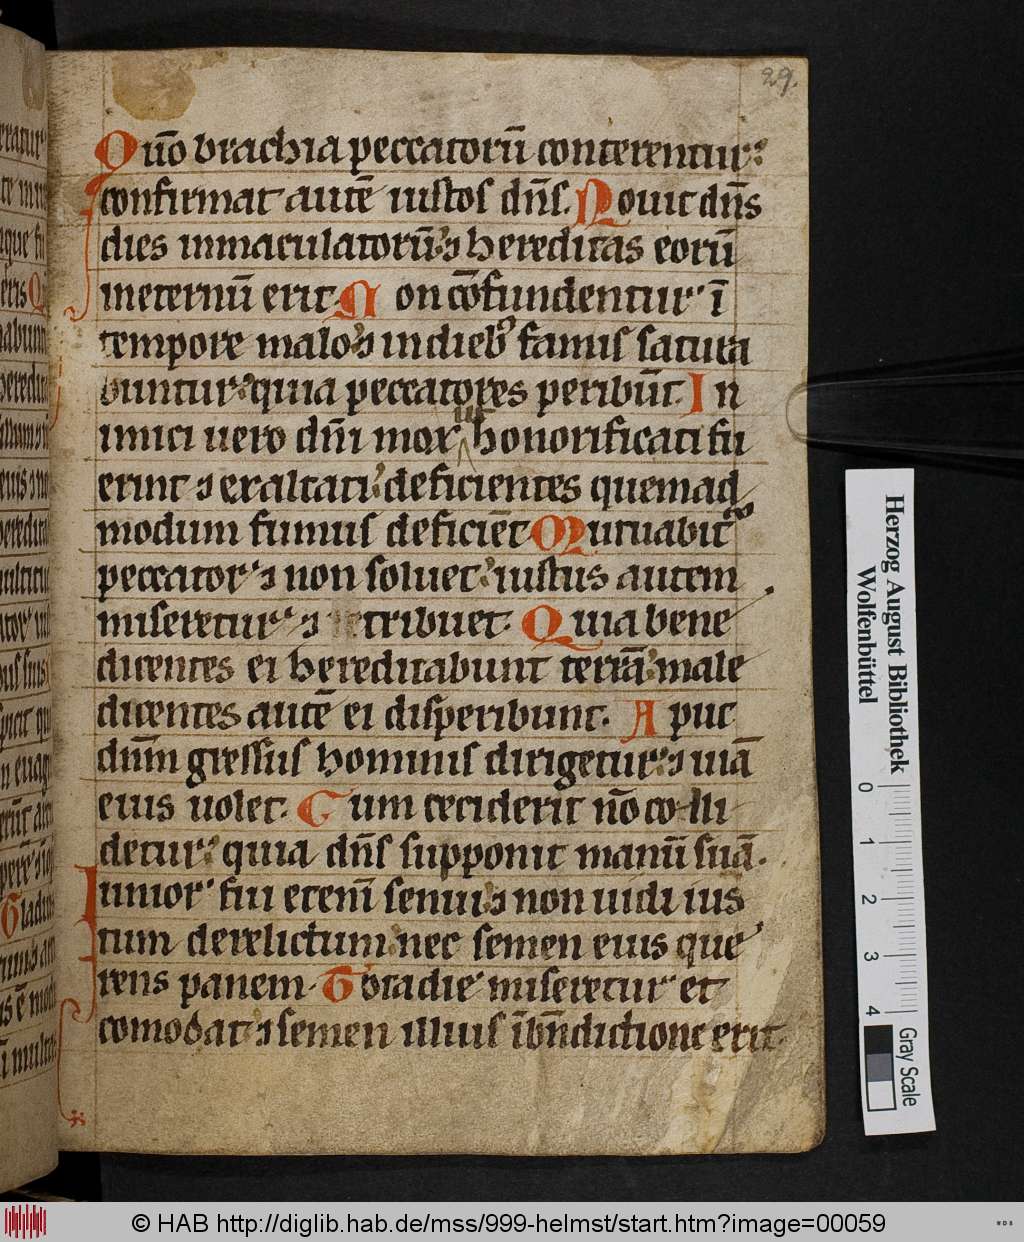 29.
Quō brachia peccatorū conterentur:
confirmat autē iustos dn̄s. Nouit dn̄s
dies inmaculatorū: ⁊ hereditas eorū
ineternū erit. Non cōfundentur ī
tempore malo: ⁊ indiebꝰ famis satura
buntur: quia peccatores peribūt. In
imici uero dn̄i mox ut honorificati fu
erint ⁊ exaltati: deficientes quemad
modum fumus deficiēt. Mutuabitᷣ
peccator ⁊ non soluet: iustus autem
miseretur ⁊ retribuet. Quia bene
dicentes ei hereditabunt terrā: male
dicentes autē ei disperibunt. Aput
dūm gressus hominis dirigetur: ⁊ uiā
eius uolet. Cum ceciderit nō colli
detur: quia dn̄s supponit manū suā.
Iunior fui etenī senui: ⁊ non uidi ius
tum derelictum: nec semen eius que
rens panem. Tota die miseretur et
comodat: ⁊ semen illius ī bn̄dictione erit.
Herzog August Bibliothek
Wolfenbüttel
0 1 2 3 4
Gray Scale
© HAB http://diglib.hab.de/mss/999-helmst/start.htm?image=00059